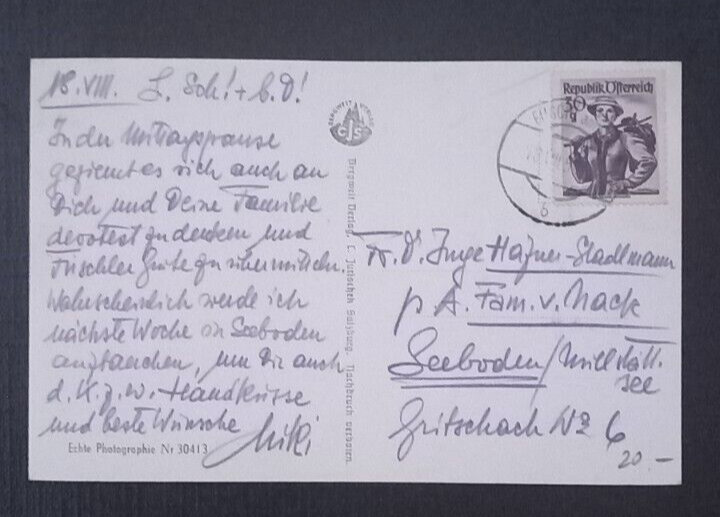 18.VIII. L. Sch! + b. D!
In der Mittagspause
geziemt es sich auch an
Dich und Deine Familie
devotest zu denken und
Fuschler Grüße zu übermitteln
Wahrscheinlich werde ich
nächste Woche in Seeboden
auftauchen, um Dir auch
d. K. z. w. Handküsse
und beste Wünsche
Miki
Echte Photographie Nr 30413
BERGWELT VERLAG
CJS
Bergwelt Verlag, C. Jurischek Salzburg. Nachdruck verboten.
Republik Österreich
30
g
6
Fr. D. Inge Hafner-Stadlmann
p A. Fam. v. Mack
Seeboden/Millstätt.
see
Gritschach No 6
20 –